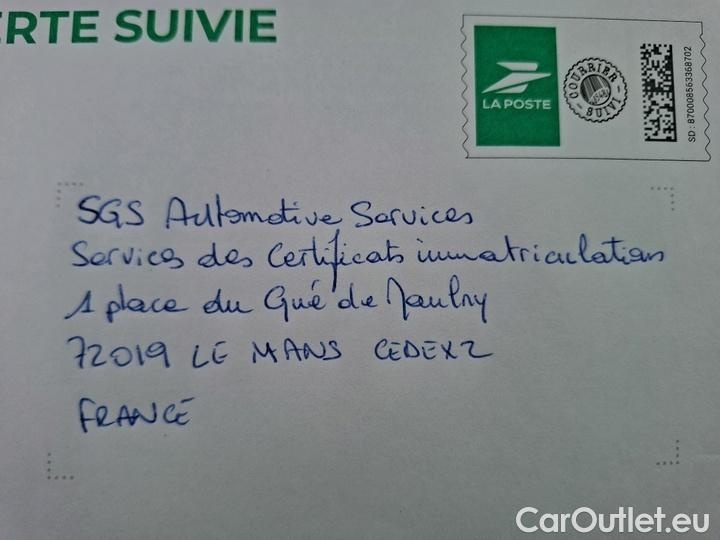 ERTE SUIVIE
LA POSTE
COURRIER
SUIVI
SD : 870008563368702
SGS Automotive Services
Services des Certificats immatriculation
1 place du Gué de Maulny
72019 LE MANS CEDEX 2
FRANCE
CarOutlet.eu